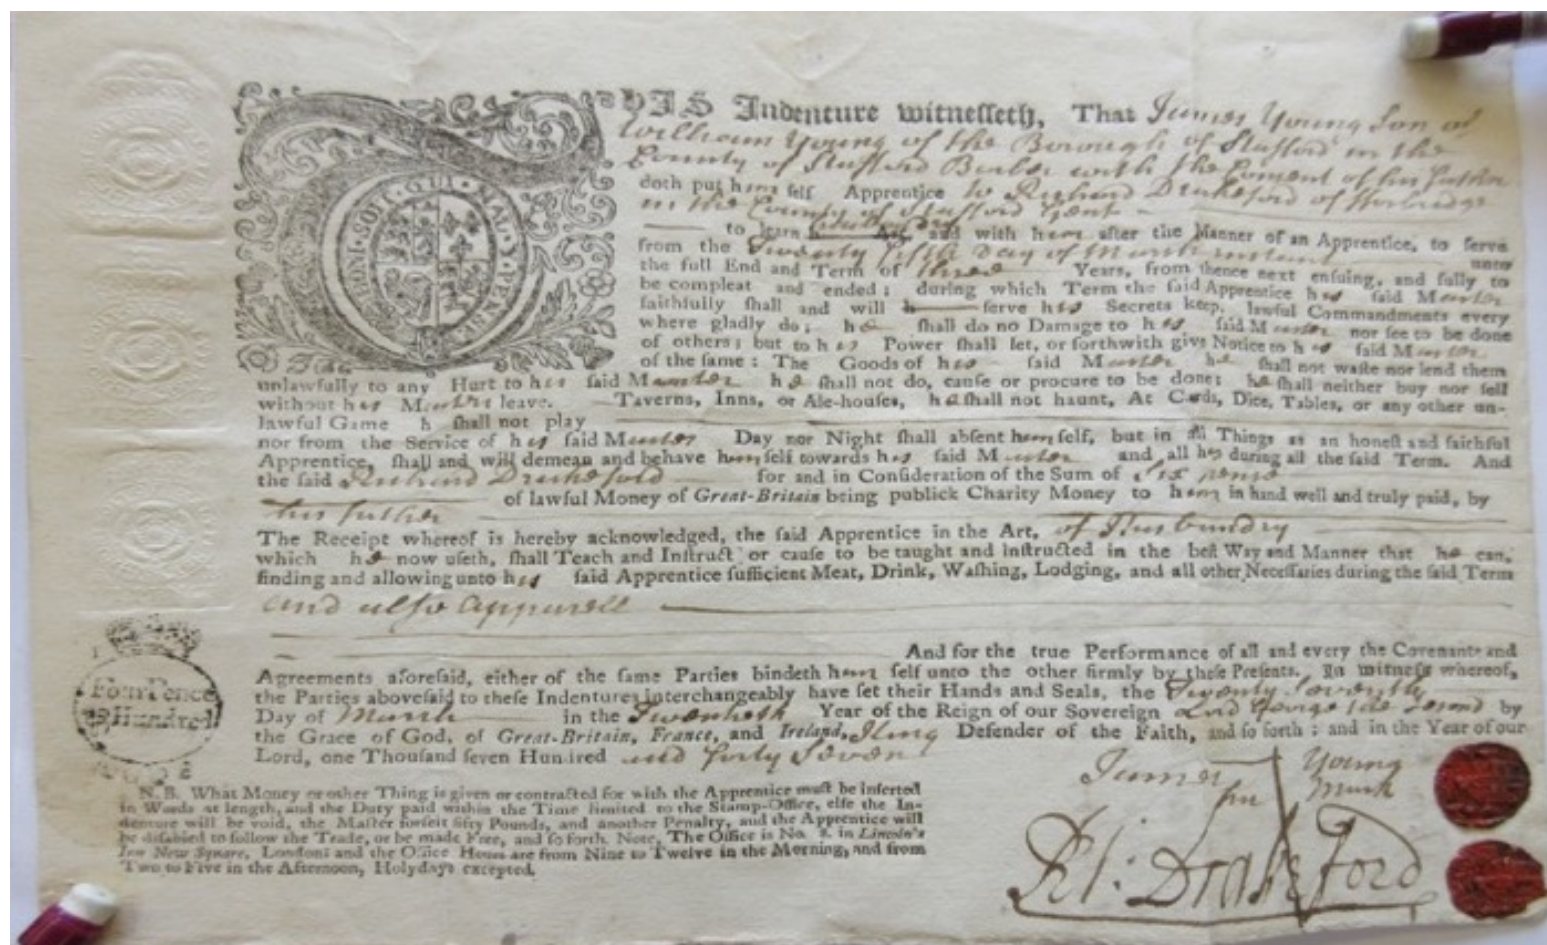 HIS Indenture witnesseth, That James Young Son of
William Young of the Borough of Stafford in the
County of Stafford Barber with the Consent of his father
doth put himself Apprentice to Richard Drakeford of
in the County of Stafford Gent
to learn and with him after the Manner of an Apprentice, to serve
from the Twenty fifth Day of March instant unto
the full End and Term of three Years, from thence next ensuing, and fully to
be compleat and ended; during which Term the said Apprentice his said Master
faithfully shall and will serve his Secrets keep, lawful Commandments every
where gladly do; he shall do no Damage to his said Master nor see to be done
of others; but to his Power shall let, or forthwith give Notice to his said Master
of the same: The Goods of his said Master he shall not waste nor lend them
unlawfully to any Hurt to his said Master he shall not do, cause or procure to be done; he shall neither buy nor sell
without his Masters leave. Taverns, Inns, or Ale-houses, he shall not haunt, At Cards, Dice, Tables, or any other un-
lawful Game h shall not play
nor from the Service of his said Master Day nor Night shall absent himself, but in all Things as an honest and faithful
Apprentice, shall and will demean and behave himself towards his said Master and all his during all the said Term. And
the said Richard Drakeford for and in Consideration of the Sum of Six pence
of lawful Money of Great-Britain being publick Charity Money to him in hand well and truly paid, by
his father
The Receipt whereof is hereby acknowledged, the said Apprentice in the Art, of Husbandry
which he now useth, shall Teach and Instruct or cause to be taught and instructed in the best Way and Manner that he can,
finding and allowing unto his said Apprentice sufficient Meat, Drink, Washing, Lodging, and all other Necessaries during the said Term
and also apparell
And for the true Performance of all and every the Covenants and
Agreements aforesaid, either of the same Parties bindeth him self unto the other firmly by these Presents. In witness whereof,
the Parties abovesaid to these Indentures interchangeably have set their Hands and Seals, the Twenty Seventh
Day of March in the Twentieth Year of the Reign of our Sovereign Lord George the Second by
the Grace of God, of Great-Britain, France, and Ireland, King Defender of the Faith, and so forth; and in the Year of our
Lord, one Thousand seven Hundred and forty Seven
Four Pence
Hundred
N.B. What Money or other Thing is given or contracted for with the Apprentice must be inserted
in Words at length, and the Duty paid within the Time limited to the Stamp-Office, else the In-
denture will be void, the Master forfeit fifty Pounds, and another Penalty, and the Apprentice will
be disabled to follow the Trade, or be made Free, and so forth. Note, The Office is No. 8. in Lincoln's
Inn New Square, London: and the Office Hours are from Nine to Twelve in the Morning, and from
Two to Five in the Afternoon, Holydays excepted.
James Young
Mark
Ri: Drakeford